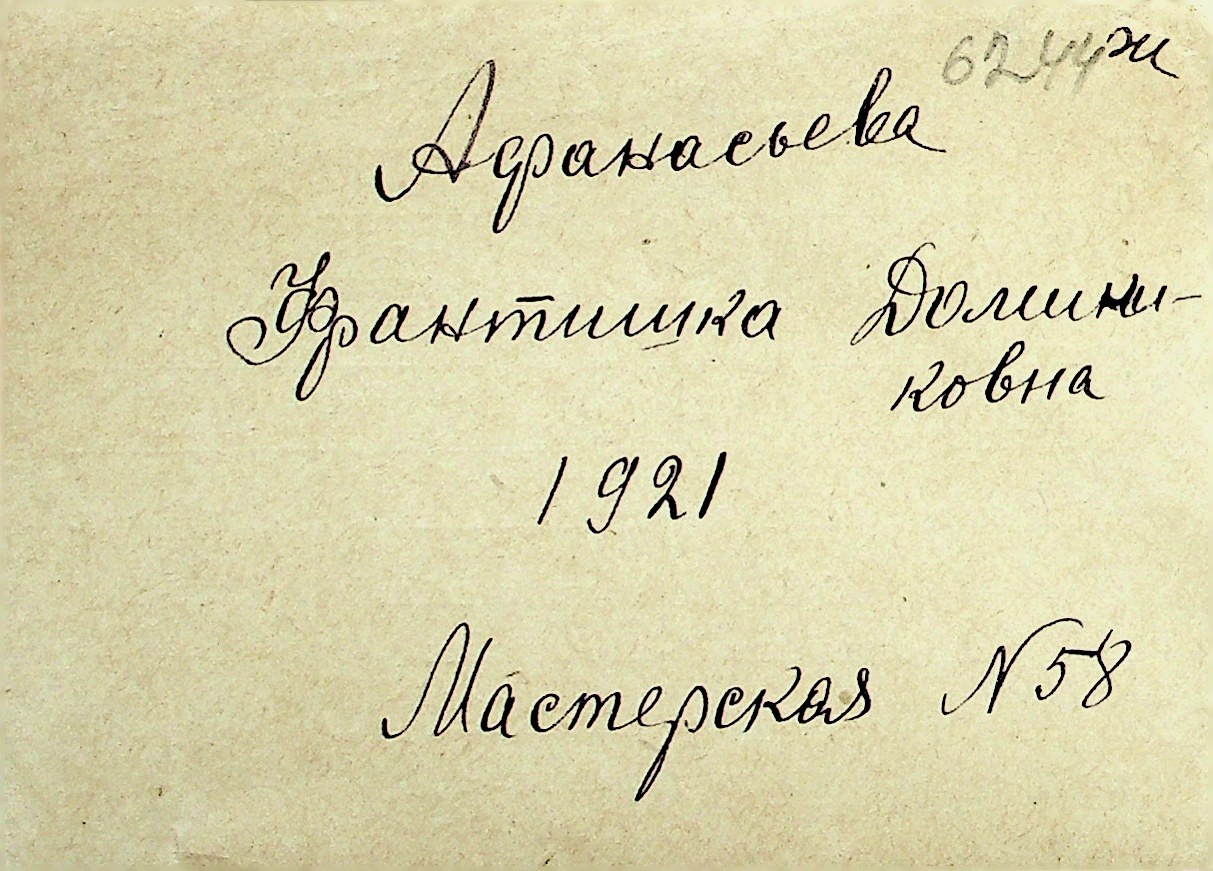 6244 ж
Афанасьева
Франтишка Домини-
ковна
1921
Мастерская N 58